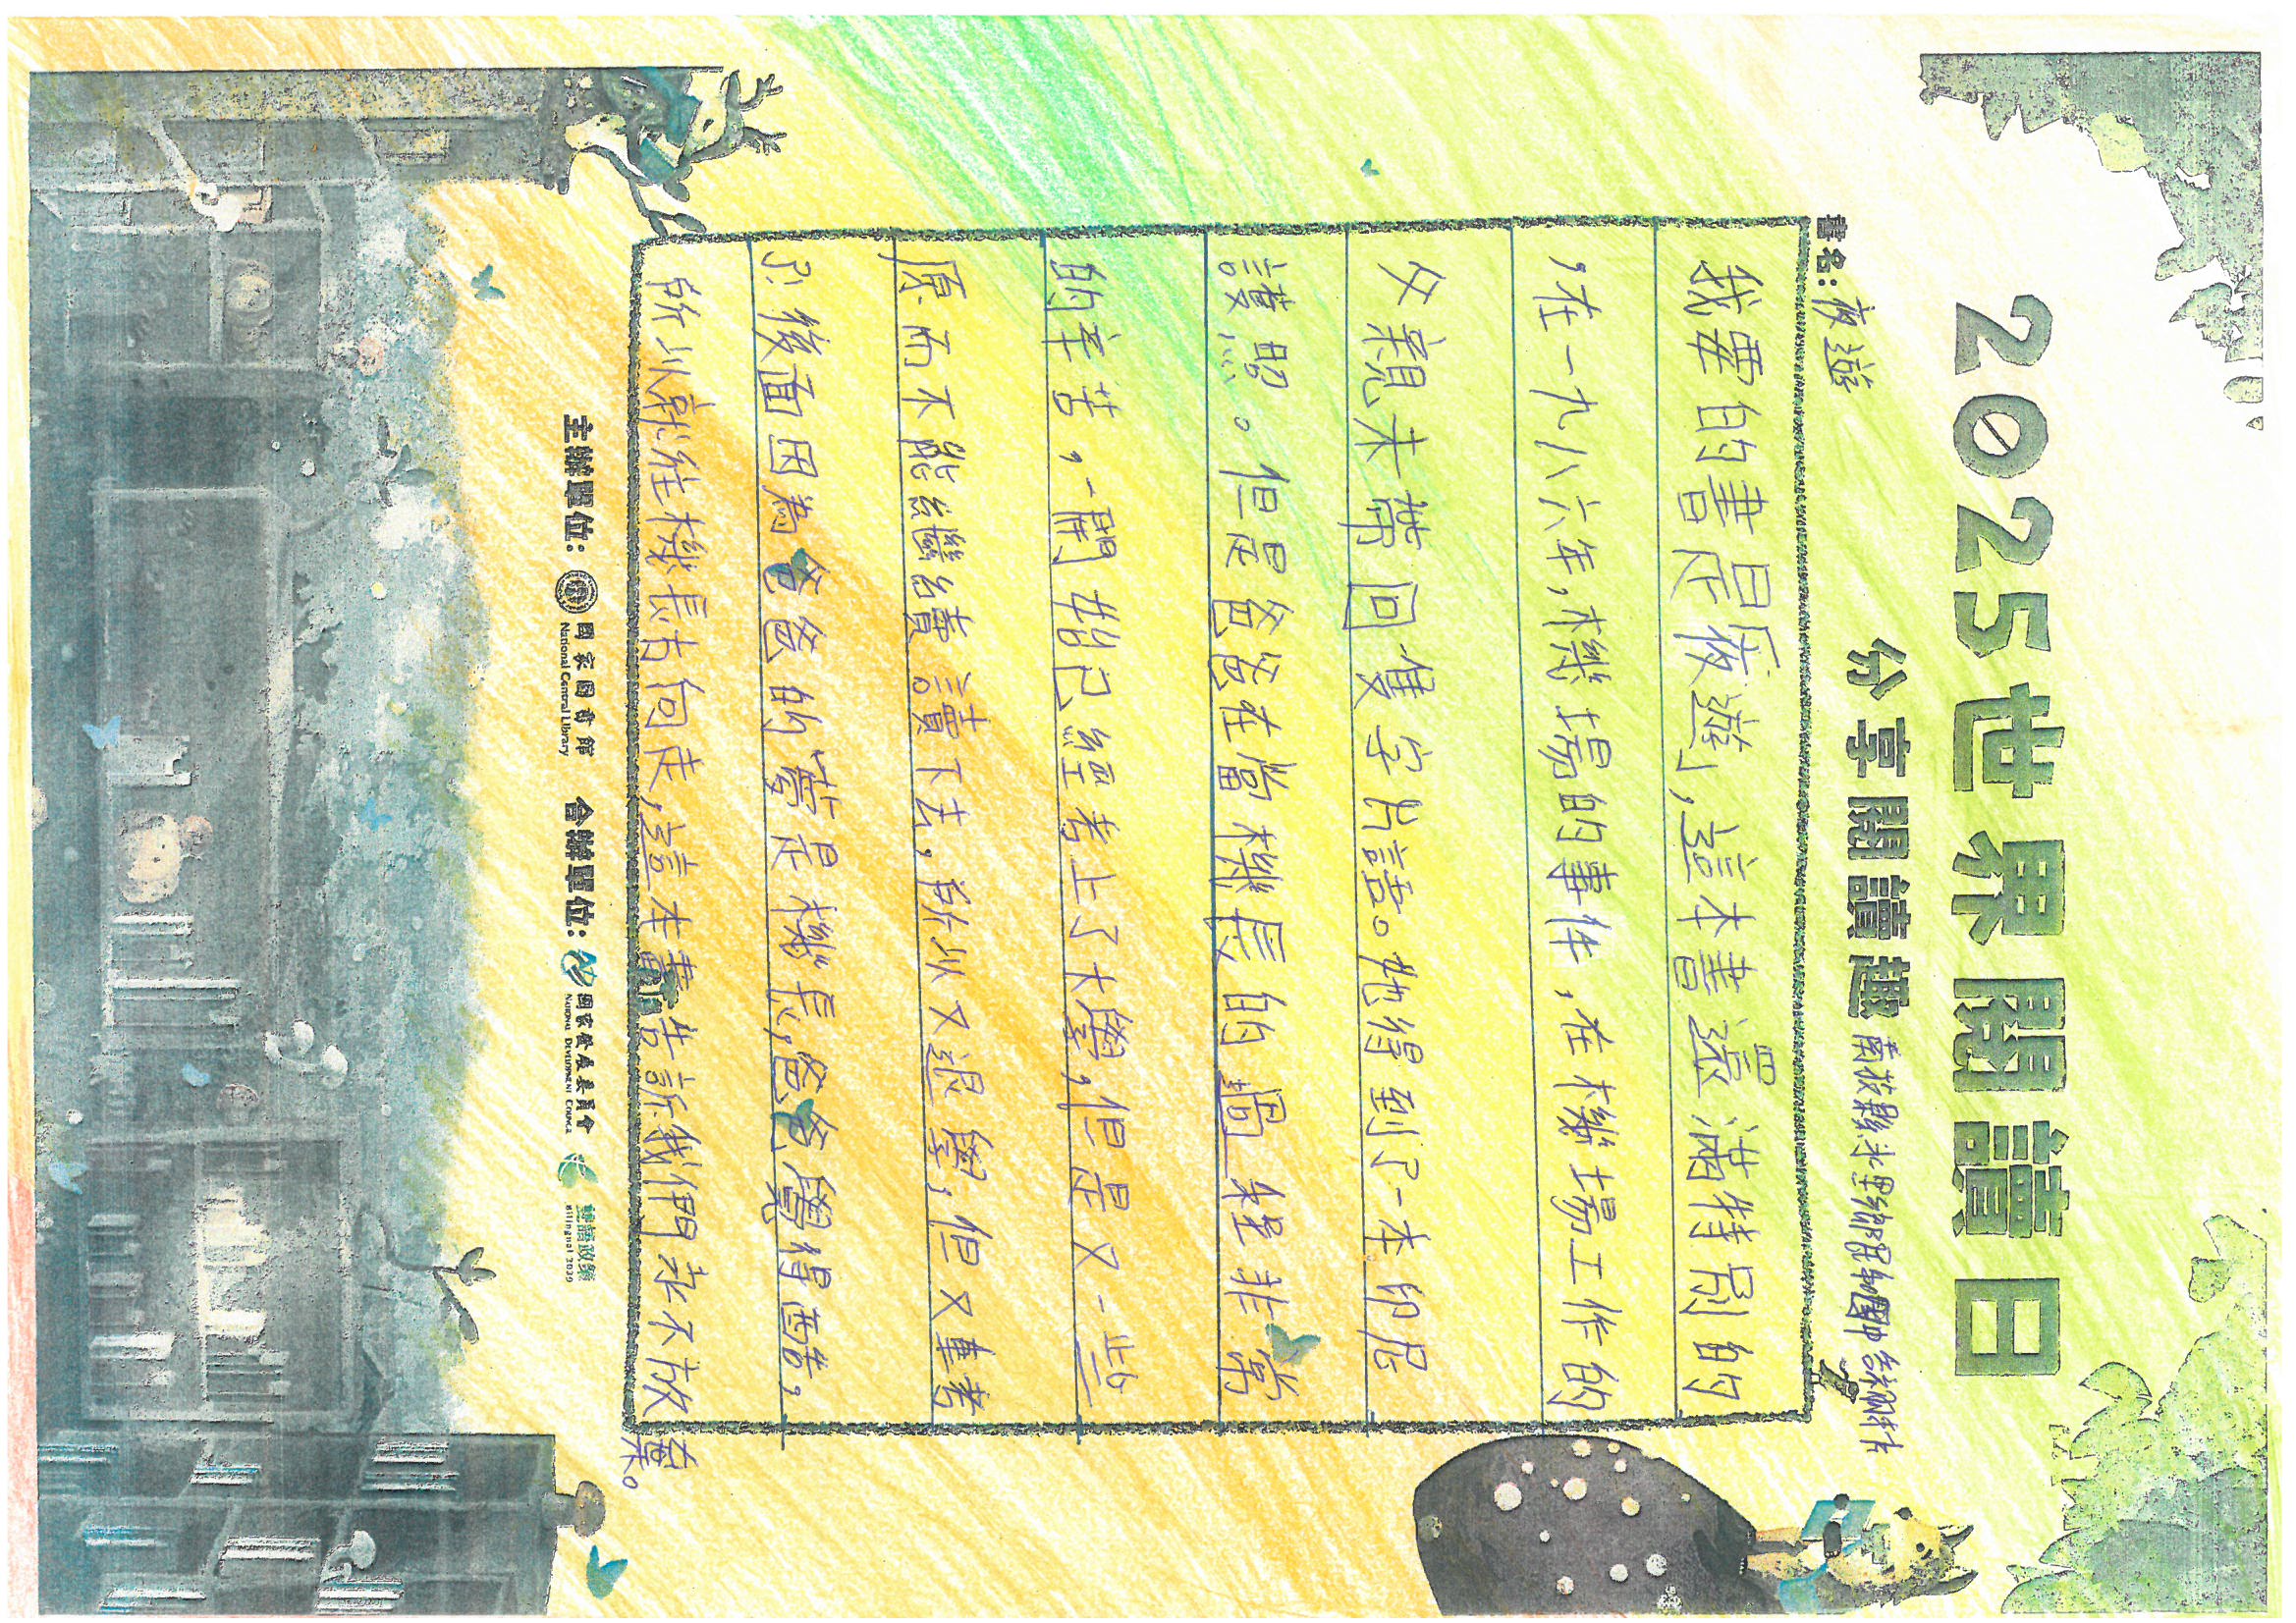 2025世界閱讀日
分享閱讀趣
書名：夜遊
我要的書是夜遊」，這本書還滿特別的
，在一九八六年，機場的事件，在機場工作的
父親未帶回隻字片語。她得到了一本印尼
護照。但是爸爸在當機長的過程非常
的辛苦，一開始已經考上了大學，但是又一些
原而不能繼續讀下去，所以又退學，但又重考
了，後面因為爸爸的夢是機長，爸爸覺得酷，
所以就往機長去向走，這本書告訴我們永不放
棄。
主辦單位：國家圖書館 National Central Library 合辦單位：國家發展委員會 National Development Council 雙語政策 Bilingual 2030